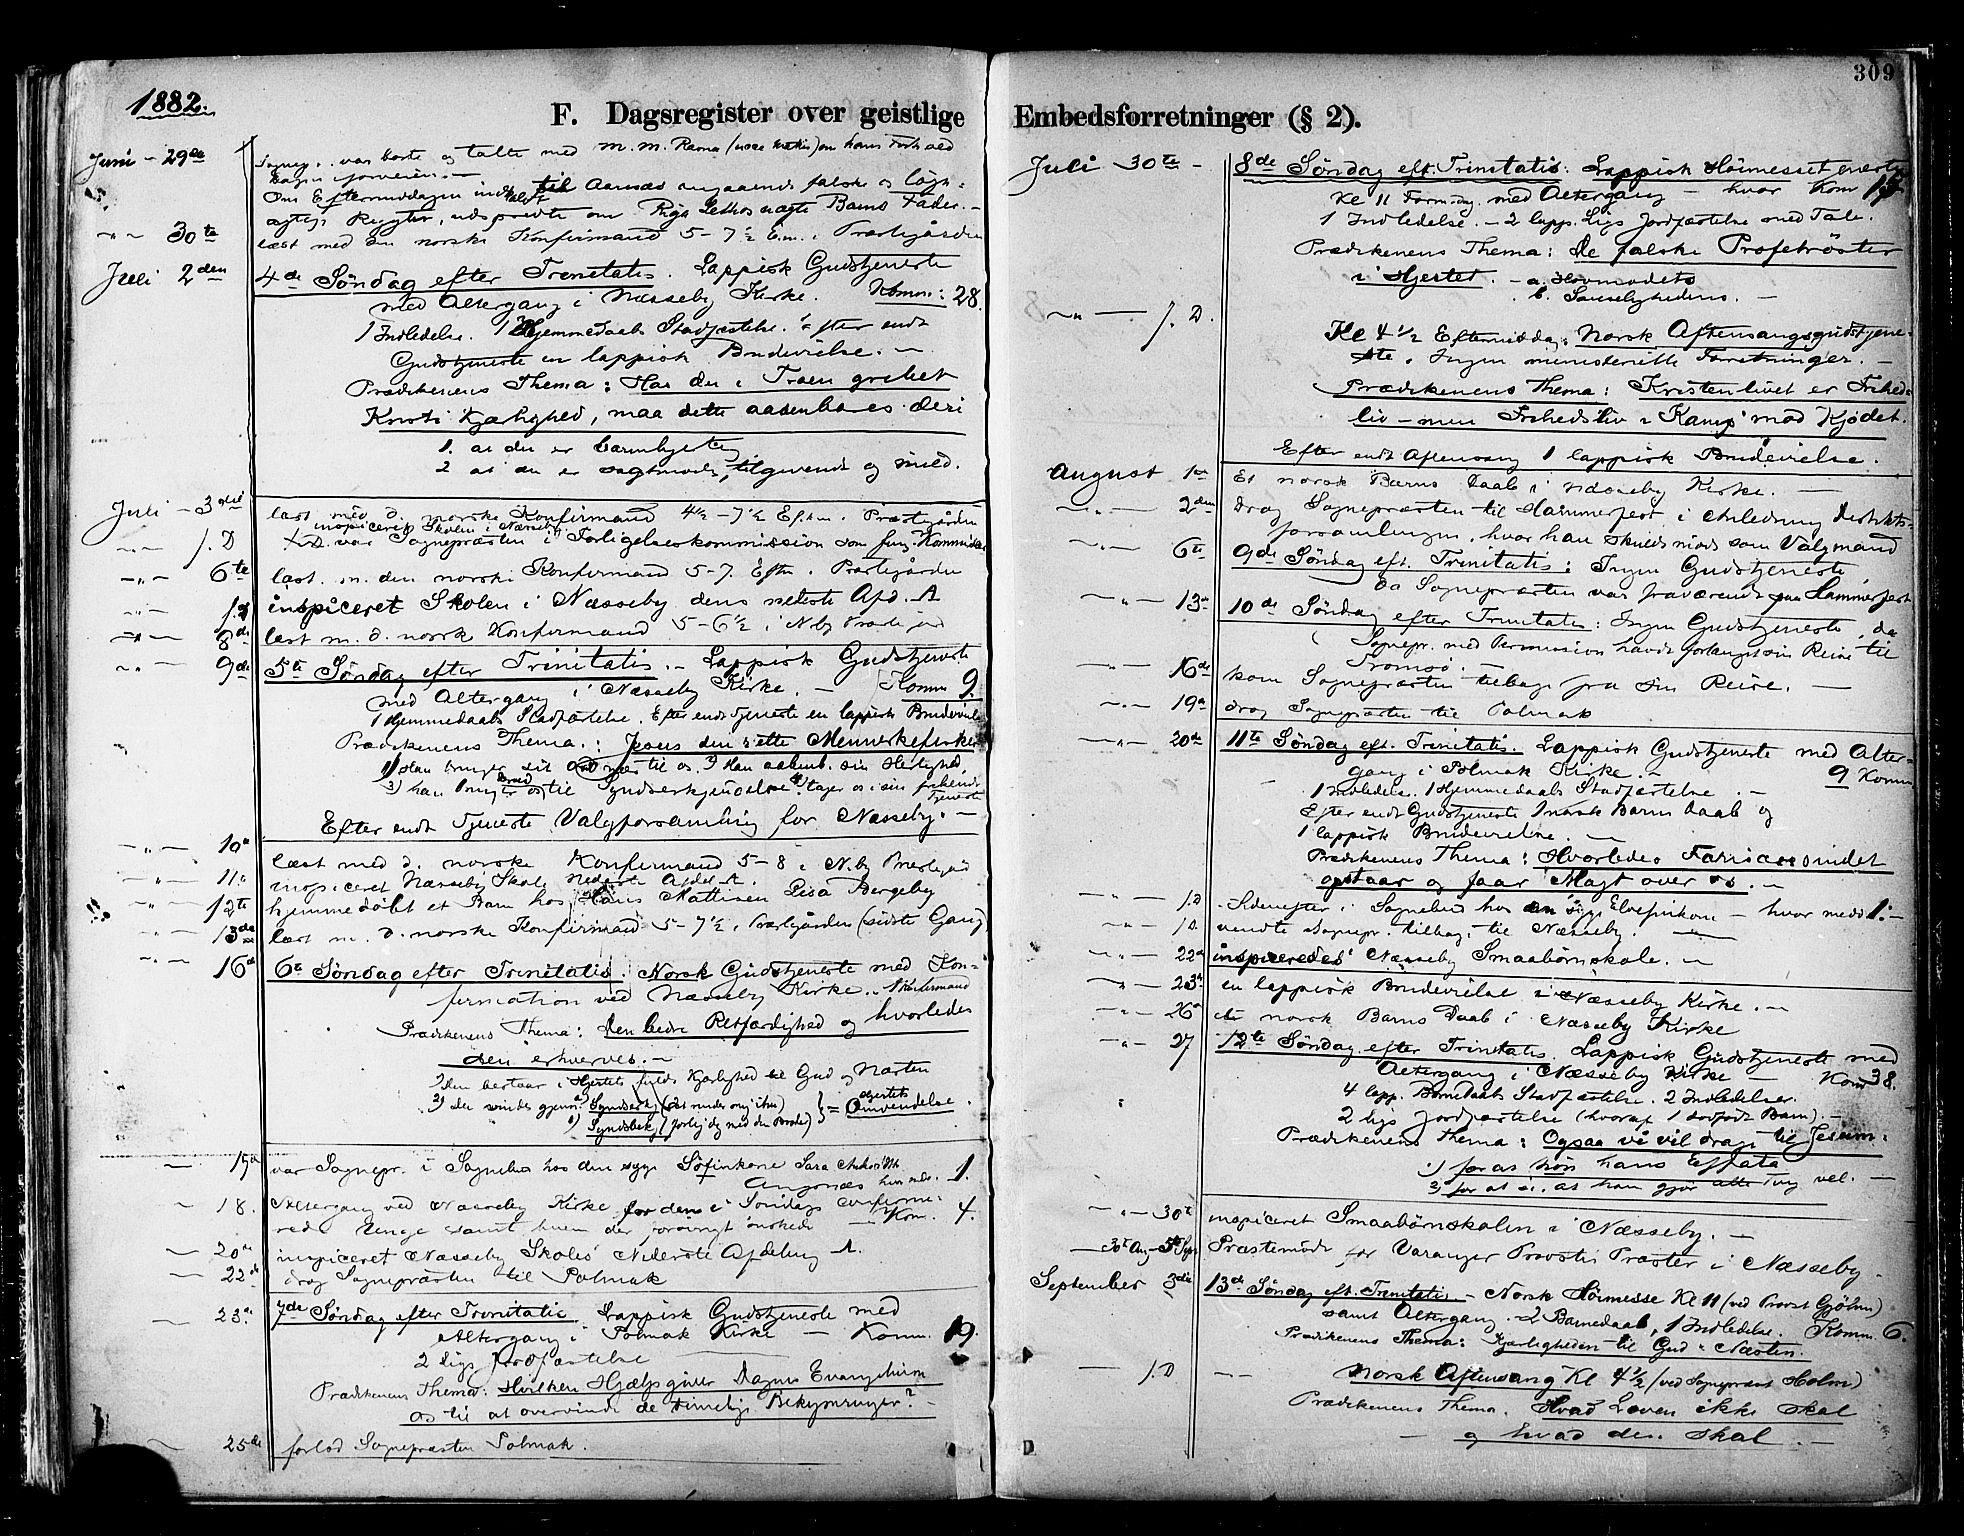 309
1882.
F. Dagsregister over geistlige Embedsforretninger (§ 2).
Juni - 29de var borte og talte med M. M. Rama om hans Forhold
Om Eftermiddagen til angaaende falske og løgn-
agtige Rygter, udspredte om Fader. -
" " 30te læst med den norske Konfirmand 5-7½ E.m. i Præstegården
Juli 2den 4de Søndag efter Trinitatis. Lappisk Gudstjeneste
med Altergang i Næsseby Kirke. Komm: 28
1 Indledelse. 1 Hjemmedaabs Stadfæstelse. Efter endt
Gudstjeneste en lappisk Brudevielse. -
Prædikenens Thema: Har du i Troen grebet
Kristi Kjærlighed, maa dette aabenbares deri
1. at du er barmhjertig
2 at du er sagtmodig, tilgivende og mild.
Juli - 3die læst med d. norske Konfirmand 4½-7½ Eftm. Præstegården
inspiceret Skolen i Næsseby
" - s. D var Sognepræsten i Forligelseskommission som fung. Kommissær
" " - 6te læst m. den norske Konfirmand 5-7. Eftm. Præstegården
" - s. d inspiceret Skolen i Næsseby dens nederste Afd. A
" - 8de læst m. d. norsk Konfirmand 5-6½ i N.by Præstegård
" - 9de 5te Søndag efter Trinitatis. - Lappisk Gudstjeneste
med Altergang i Næsseby Kirke. - Komm 9.
1 Hjemmedaabs Stadfæstelse. Efter endt Tjeneste en lappisk Brudevielse
Prædikenens Thema: Jesus den rette Menneskefisker
1) Han bruger sit Ord til os. 2) Han aabenb. sin Herlighed
3) han bringer os til Syndserkjendelse 4) tager os i sin frelsende
Tjeneste
Efter endt Tjeneste Valgforsamling for Næsseby. -
" - 10de læst med d. norske Konfirmand 5-8 i N.by Præstegård
" - 11te inspiceret Næsseby Skole nederste Afdel. A.
" - 12te hjemmedøbt et Barn hos Hans Mathisen Lisa Bergeby
" - 13de læst m. d. norske Konfirmand 5-7½ i Præstegården (sidste Gang)
" - 16de 6te Søndag efter Trinitatis. Norsk Gudstjeneste med Kon-
firmation ved Næsseby Kirke. - 1 Konfirmand
Prædikenens Thema: Den bedre Retfærdighed og hvorledes
den erhverves. -
1) den bestaar i Hjertets fulde Kjærlighed til Gud og Næsten
2) den vindes gjenn. a) Syndserkj. = Hjertets
b) Syndsbekj. (forlig dig med din Broder) Omvendelse.
- var Sognepr. i Sognebud hos den syge Søfinkone Sara 1.
Angsnæs hvor meds.
- 18. Altergang ved Næsseby Kirke for den i Søndags confirme-
rede Unge samt hvem der forøvrigt ønskede - Kom. 4.
- 20de inspiceret Næsseby Skoles Nederste Afdeling A.
- 22de drog Sognepræsten til Polmak
- 23de 7de Søndag efter Trinitatis Lappisk Gudstjeneste med
Altergang i Polmak Kirke - Komm. 19.
2 Ligs Jordfæstelse
Prædikenens Thema: Hvilken Hjælp giver Dagens Evangelium
os til at overvinde de timelige Bekymringer? -
- 25de forlod Sognepræsten Polmak.
Juli 30te - 8de Søndag eft. Trinitatis: Lappisk Høimessetjeneste
Kl 11 Form. med Altergang - hvor Kom 17
1 Indledelse. - 2 lapp. Ligs Jordfæstelse med Tale.
Prædikenens Thema: De falske Profetrøster
i Hjertet. - a. Hovmodets
b. Sanselighedens. -
" - s. D. Kl 4½ Eftermiddag: Norsk Aftensangsgudstjene-
ste. Ingen ministerielle Forretninger. -
Prædikenens Thema: Kristenlivet er Friheds-
liv - men Frihedsliv i Kamp mod Kjødet.
Efter endt Aftensang 1 lappisk Brudevielse.
August 1ste Et norsk Barns Daab i Næsseby Kirke. -
" - 2den drog Sognepræsten til Hammerfest i Anledning Distrikts-
forsamlingen, hvor han skulde møde som Valgmand
" - 6te 9de Søndag eft. Trinitatis: Ingen Gudstjeneste
da Sognepræsten var fraværende paa Hammerfest
" - 13de 10de Søndag efter Trinitatis: Ingen Gudstjeneste, da
Sognepr. med Permission havde forlænget sin Reise til
Tromsø. -
" - 16de kom Sognepræsten tilbage fra sin Reise. -
" - 19de drog Sognepræsten til Polmak
" - 20de 11te Søndag eft. Trinitatis. Lappisk Gudstjeneste med Alter-
gang i Polmak Kirke. - 9 Komm
1 Indledelse. 1 Hjemmedaabs Stadfæstelse. -
Efter endt Gudstjeneste 1 norsk Barns Daab og
1 lappisk Brudevielse. -
Prædikenens Thema: Hvorledes Farisæersindet
opstaar og faar Magt over os. -
" - s. D. Sidenefter i Sognebud hos en syg Elvefinkone - hvor meds 1. -
" - s. D. vendte Sognepr. tilbage til Næsseby.
" - 22de inspiceredes Næsseby Smaabørnskole. -
" - 23de en lappisk Brudevielse i Næsseby Kirke. -
" - 26de norsk Barns Daab i Næsseby Kirke
" - 27 12te Søndag efter Trinitatis. Lappisk Gudstjeneste med
Altergang i Næsseby Kirke - Kom 38.
4 lapp. Børnedaabs Stadfæstelse. 2 Indledelser.
2 Ligs Jordfæstelse (hvoraf 1 dødfødt Barn). -
Prædikenens Thema: Ogsaa vi vil drage til Jesum:
1) for at høre hans Effata
2) for at se, at han gjør alle Ting vel. -
" - 30te inspiceret Smaabørnskolen i Næsseby. -
- 30te Aug - 5te Sept Præstemøde for Varanger Provstis Præster i Næsseby.
September 3die 13de Søndag eft. Trinitatis - Norsk Høimesse Kl 11 (ved Provst Gjølme)
samt Altergang. 2 Barnedaab, 1 Indledelse. Komm. 6.
Prædikenens Thema: Kjærligheden til Gud & Næsten.
- s. D - Norsk Aftensang Kl 4½ (ved Sognepræst Holm)
Prædikenens Thema. Hvad Loven ikke skal
- og hvad den skal. -